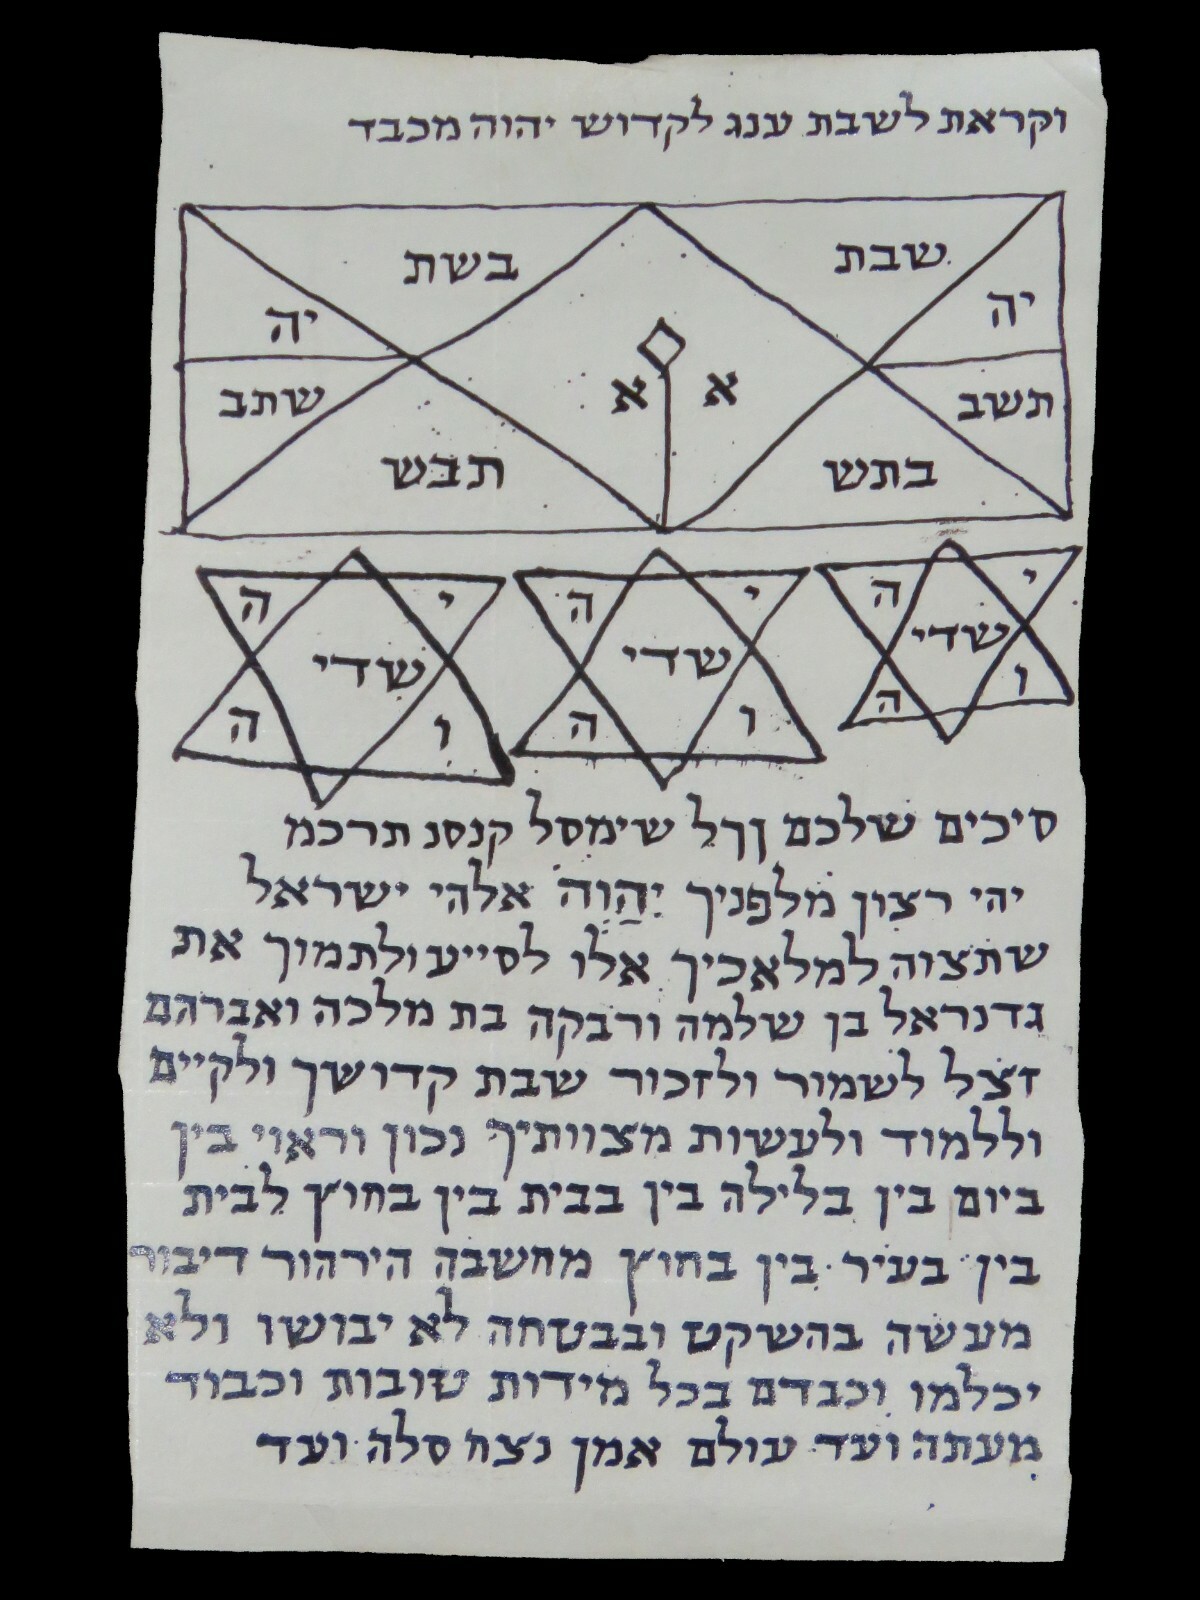 וקראת לשבת ענג לקדוש יהוה מכבד
שבת בשת
יה יה
א א
תשב שתב
בתש תבש
י ה י ה י ה
שדי שדי שדי
ו ה ו ה ו ה
סיכים שלכם ןרל שימסל קנסנ תרכמ
יהי רצון מלפניך יהוה אלהי ישראל
שתצוה למלאכיך אלו לסייע ולתמוך את
גדנראל בן שלמה ורבקה בת מלכה ואברהם
זצל לשמור ולזכור שבת קדושך ולקיים
וללמוד ולעשות מצוותיך נכון וראוי בין
ביום בין בלילה בין בבית בין בחוץ לבית
בין בעיר בין בחוץ מחשבה הירהור דיבור
מעשה בהשקט ובבטחה לא יבושו ולא
יכלמו וכבדם בכל מידות טובות וכבוד
מעתה ועד עולם אמן נצח סלה ועד